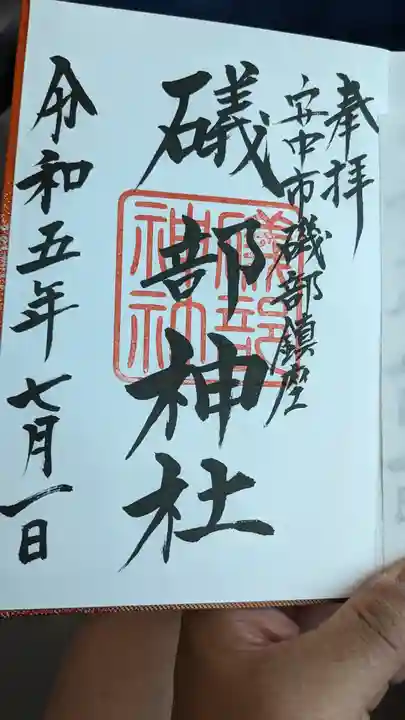 奉拝
安中市磯部鎮座
礒部神社
礒部
神社
令和五年七月一日